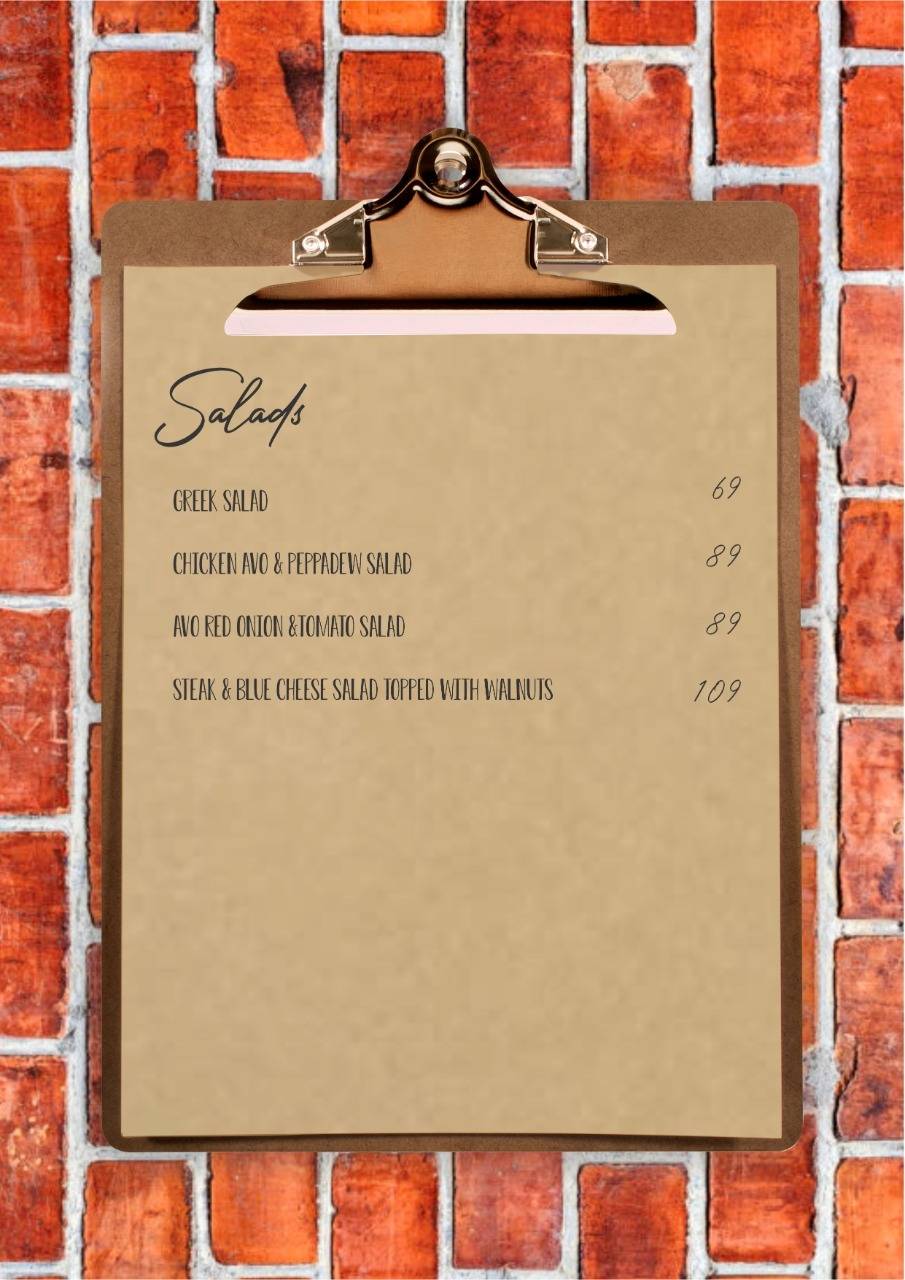 Salads
GREEK SALAD 69
CHICKEN AVO & PEPPADEW SALAD 89
AVO RED ONION &TOMATO SALAD 89
STEAK & BLUE CHEESE SALAD TOPPED WITH WALNUTS 109